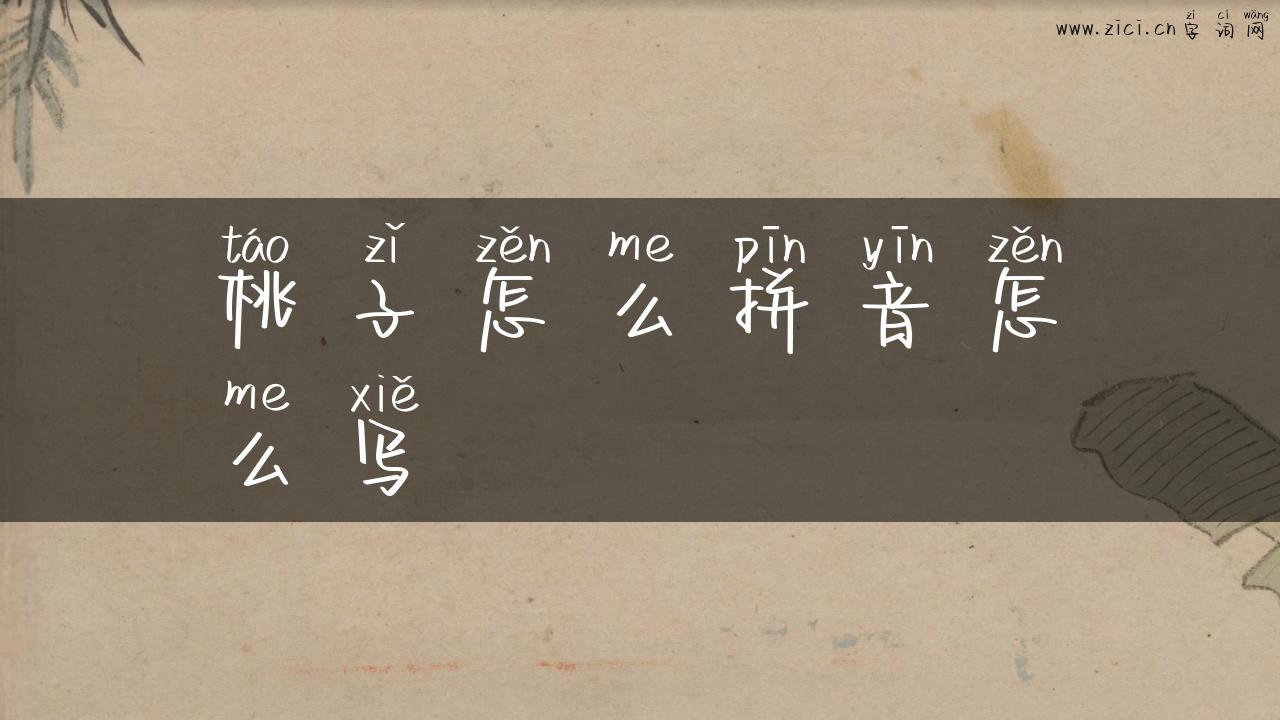 zì cí wǎng
www.zici.cn 字 词 网
táo zǐ zěn me pīn yīn zěn
桃 子 怎 么 拼 音 怎
me xiě
么 写